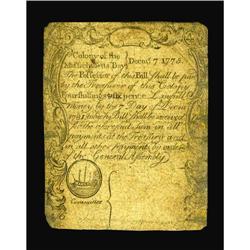 Colony of the
Massachusetts Bay } Decemr. 7 1775
The Possessor of this Bill shall be paid
by the Treasurer of this Colony
Four shillings & six pence Lawfull
money by the 7 Day of Decem
which Bill shall be received
for the aforesaid sum in all
payments at the Treasury and
in all other payments by order
of the General Assembly
Committee